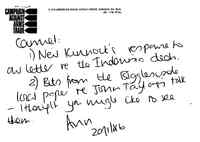 CAMPAIGN
AGAINST
ARMS
TRADE
Carmel:
1) Neil Kinnock's response to
our letter re the Indonesia deal.
2) Bits from the
local paper re John Taylor's talk
- I thought you might like to see
them.
Ann
20/1/86